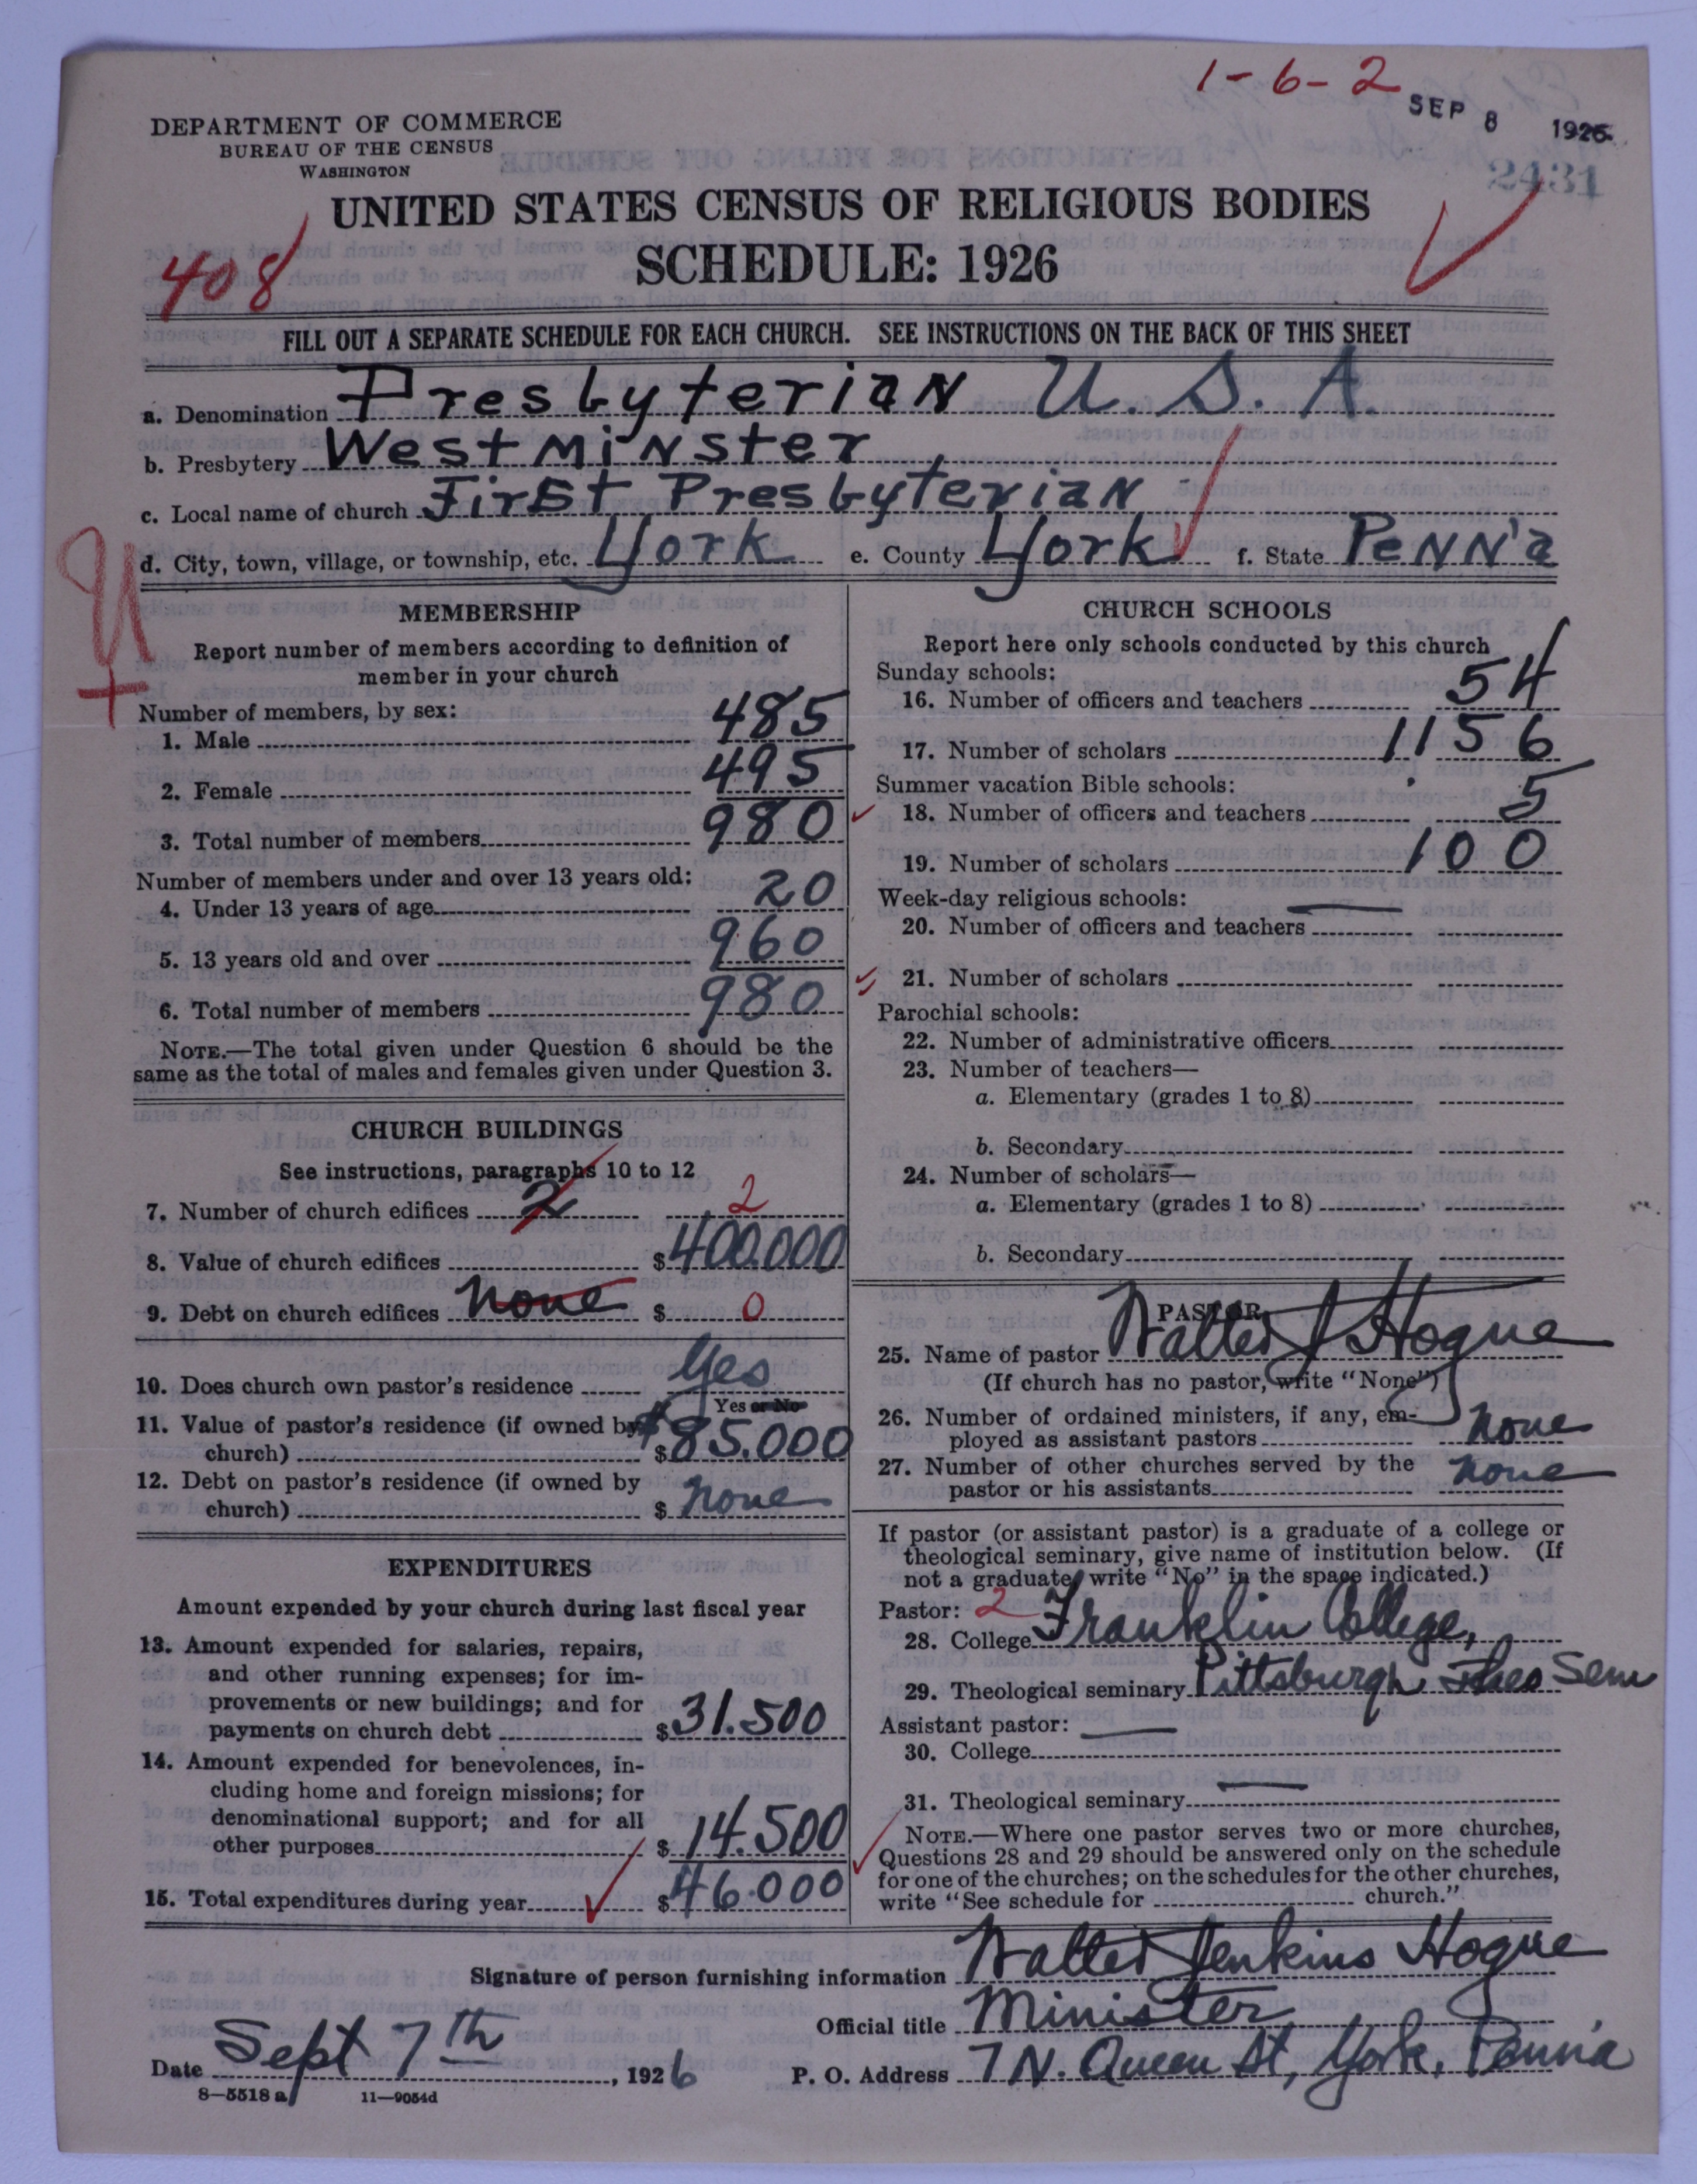 1-6-2
SEP 8 1926
2431
DEPARTMENT OF COMMERCE
BUREAU OF THE CENSUS
WASHINGTON
UNITED STATES CENSUS OF RELIGIOUS BODIES
SCHEDULE: 1926
408
FILL OUT A SEPARATE SCHEDULE FOR EACH CHURCH. SEE INSTRUCTIONS ON THE BACK OF THIS SHEET
a. Denomination Presbyterian U.S.A.
b. Presbytery Westminster
c. Local name of church First Presbyterian
d. City, town, village, or township, etc. York e. County York f. State Penn'a
MEMBERSHIP
Report number of members according to definition of
member in your church
Number of members, by sex:
1. Male 485
2. Female 495
3. Total number of members 980
Number of members under and over 13 years old:
4. Under 13 years of age 20
5. 13 years old and over 960
6. Total number of members 980
NOTE.—The total given under Question 6 should be the
same as the total of males and females given under Question 3.
CHURCH BUILDINGS
See instructions, paragraphs 10 to 12
7. Number of church edifices 2 2
8. Value of church edifices $400.000
9. Debt on church edifices none $ 0
10. Does church own pastor's residence Yes
Yes or No
11. Value of pastor's residence (if owned by
church) $ $85.000
12. Debt on pastor's residence (if owned by
church) $ none
EXPENDITURES
Amount expended by your church during last fiscal year
13. Amount expended for salaries, repairs,
and other running expenses; for im-
provements or new buildings; and for
payments on church debt $31.500
14. Amount expended for benevolences, in-
cluding home and foreign missions; for
denominational support; and for all
other purposes $14.500
15. Total expenditures during year $46.000
CHURCH SCHOOLS
Report here only schools conducted by this church
Sunday schools:
16. Number of officers and teachers 54
17. Number of scholars 1156
Summer vacation Bible schools:
18. Number of officers and teachers 5
19. Number of scholars 100
Week-day religious schools:
20. Number of officers and teachers
21. Number of scholars
Parochial schools:
22. Number of administrative officers
23. Number of teachers—
a. Elementary (grades 1 to 8)
b. Secondary
24. Number of scholars—
a. Elementary (grades 1 to 8)
b. Secondary
PASTOR
25. Name of pastor Walter J Hogue
(If church has no pastor, write "None")
26. Number of ordained ministers, if any, em-
ployed as assistant pastors none
27. Number of other churches served by the
pastor or his assistants none
If pastor (or assistant pastor) is a graduate of a college or
theological seminary, give name of institution below. (If
not a graduate, write "No" in the space indicated.)
Pastor: 2
28. College Franklin College,
29. Theological seminary Pittsburgh Theo Sem
Assistant pastor:
30. College
31. Theological seminary
NOTE.—Where one pastor serves two or more churches,
Questions 28 and 29 should be answered only on the schedule
for one of the churches; on the schedules for the other churches,
write "See schedule for church."
Signature of person furnishing information Walter Jenkins Hogue
Official title Minister
Date Sept 7th, 1926 P. O. Address 7 N. Queen St, York, Penn'a
8—5518 a 11—9054d